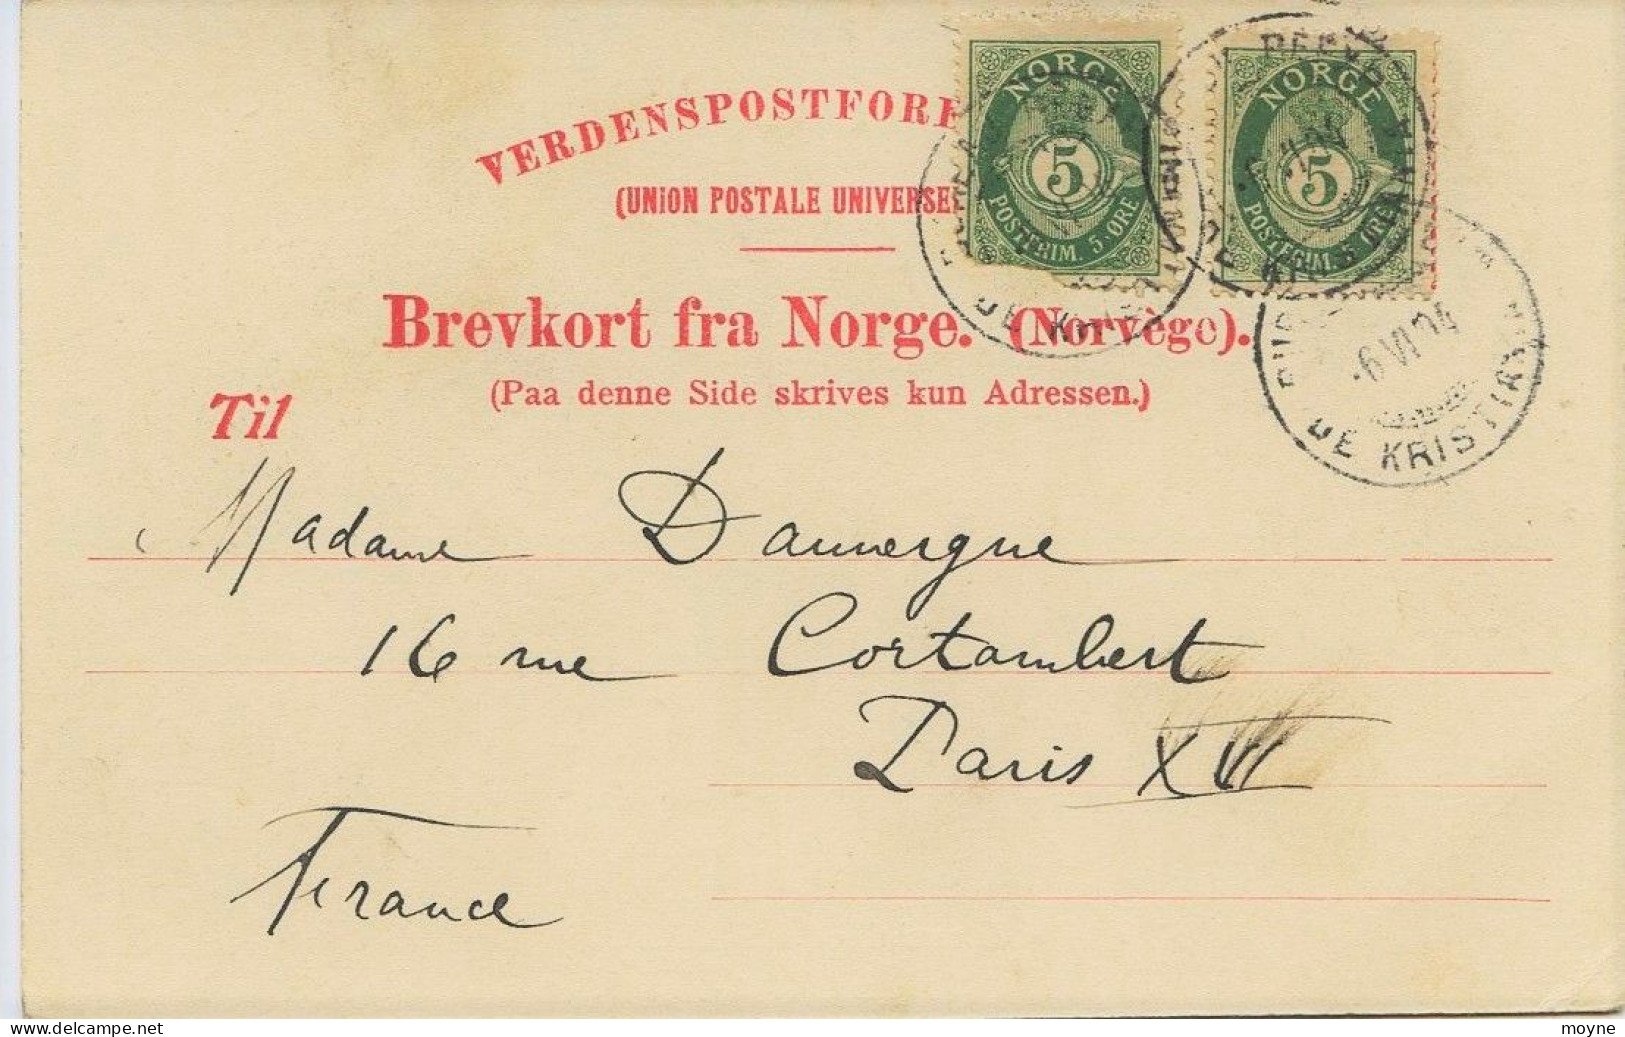 VERDENSPOSTFORE
(UNION POSTALE UNIVERSE
NORGE
5
POSTFRIM. 5 ØRE
NORGE
5
POSTFRIM. 5 ØRE
Brevkort fra Norge. (Norvège).
(Paa denne Side skrives kun Adressen.)
-6 VI 04
DE KRISTIANIA
Til
Madame Dauvergne
16 rue Cortambert
Paris XVI
France
www.delcampe.net
moyne